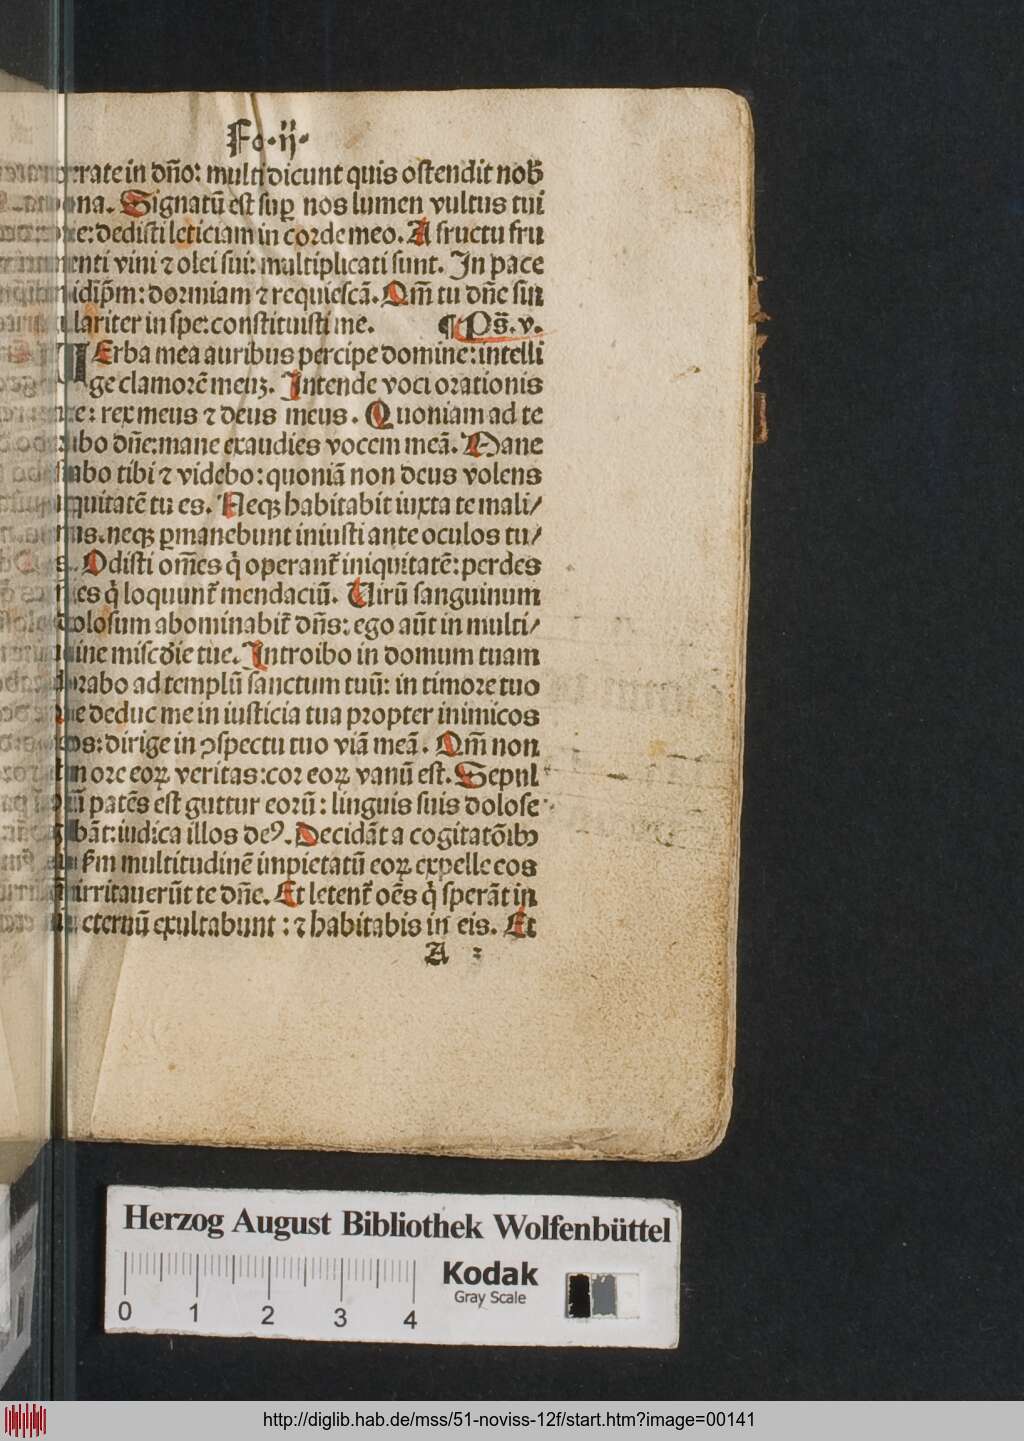 Fo. ij.
rate in dn̄o: multi dicunt quis ostendit nob̄
na. Signatū est suꝑ nos lumen vultus tui
e: dedisti leticiam in corde meo. A fructu fru
menti vini ⁊ olei sui: multiplicati sunt. In pace
idip̄m: dormiam ⁊ requiescā. Qm̄ tu dn̄e sin
lariter in spe: constituisti me. ¶ Ps̄. v.
VErba mea auribus percipe domine: intelli
ge clamorē meuꝫ. Intende voci orationis
e: rex meus ⁊ deus meus. Quoniam ad te
bo dn̄e: mane exaudies vocem meā. Mane
abo tibi ⁊ videbo: quoniā non deus volens
iquitatē tu es. Neqꝫ habitabit iuxta te mali/
us. neqꝫ ꝑmanebunt iniusti ante oculos tu/
s. Odisti om̄es q̇ operant᷑ iniquitatē: perdes
es q̇ loquunt᷑ mendaciū. Uirū sanguinum
dolosum abominabit᷑ dn̄s: ego aūt in multi/
ine misc̄die tue. Introibo in domum tuam
rabo ad templū sanctum tuū: in timore tuo
e deduc me in iusticia tua propter inimicos
os: dirige in ꝯspectu tuo viā meā. Qm̄ non
in ore eoꝝ veritas: cor eoꝝ vanū est. Sepul
ū patēs est guttur eorū: linguis suis dolose
bāt: iudica illos deꝰ. Decidāt a cogitatōibꝰ
s᷑m multitudinē impietatū eoꝝ expelle eos
irritauerūt te dn̄e. Et letent᷑ oēs q̇ sperāt in
eternū exultabunt: ⁊ habitabis in eis. Et
A 2
Herzog August Bibliothek Wolfenbüttel
0 1 2 3 4
Kodak
Gray Scale
http://diglib.hab.de/mss/51-noviss-12f/start.htm?image=00141